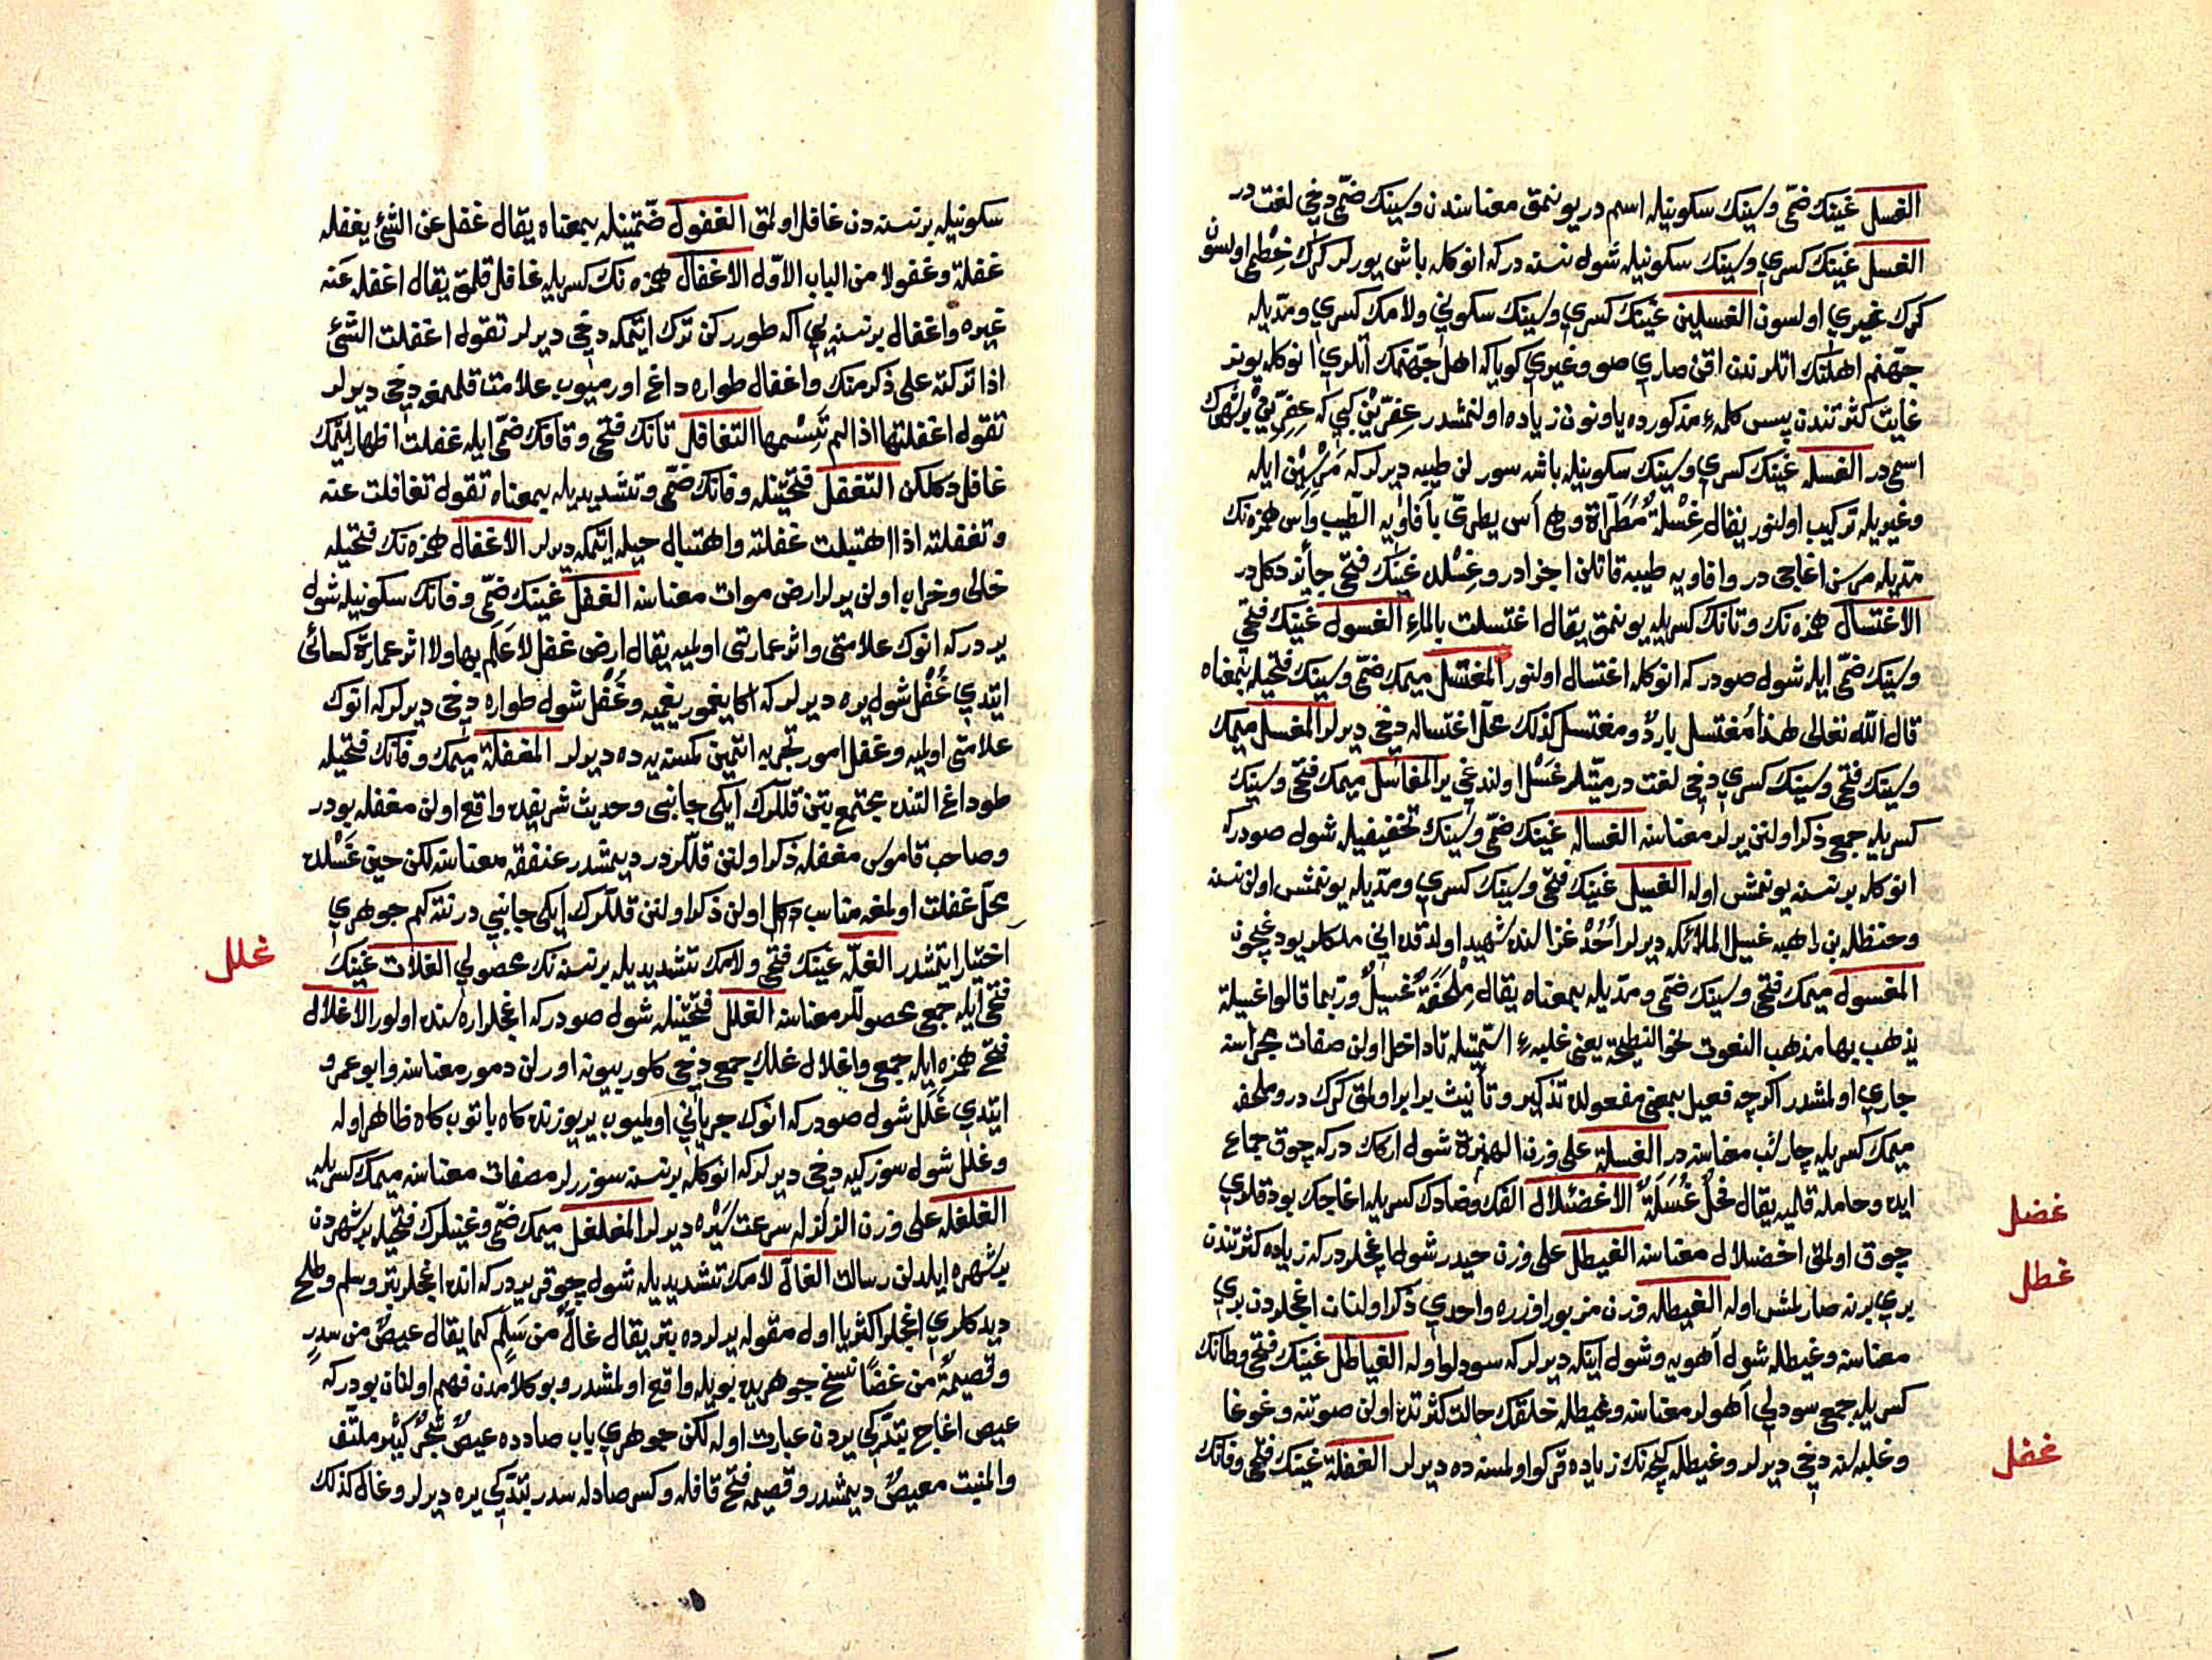 الغسل غينك ضمّى وسينك سكونيله اسم در يونمق معناسندن وسينك ضمّى دخى لغت در
الغسل غينك كسرى وسينك سكونيله شول نسنه در كه انوكله باش يورلر كرك خطمى اولسون
كرك غيرى اولسون الغسلين غينك كسرى وسينك سكونى ولامك كسرى ومدّيله
جهنم اهلنك اتلرندن اقن صارى صو وغيرى كويا كه اهل جهنمك اتلرى انوكله يونر
غايت كثرتندن پيس كلمۀ مذكورده يا ونون زياده اولنمشدر عفرّين كبى كه عفرّين بر شهرك
اسمى در الغسله غينك كسرى وسينك سكونيله باشه سورلن طيبه ديرلر كه مرسين ايله
وغيريله تركيب اولنور يقال غسلة مطرّاة وهى آس يطرى بأفاويه الطيب وآس همزه نك
مدّيله مرسن اغاجى در وافاويه طيبه قاتلن اجزادر وغسلده غينك فتحى جائز دكلدر
الاغتسال همزه نك وتانك كسريله يونمق يقال اغتسلت بالماء الغسول غينك فتحى
وسينك ضمّى ايله شول صودر كه انوكله اغتسال اولنور المغتسل ميمك ضمّى وسينك فتحيله بمعناه
قال الله تعالى هذا مغتسل بارد ومغتسل كذلك محلّ اغتساله دخى ديرلر المغسل ميمك
وسينك فتحى وسينك كسرى دخى لغت در ميّتلر غسل اولندغى ير المغاسل ميمك فتحى وسينك
كسريله جمعى ذكر اولنن يرلر معناسنه الغساله غينك ضمّى وسينك تخفيفيله شول صودر كه
انوكله بر نسنه يونمش اوله الغسيل غينك فتحى وسينك كسرى ومدّيله يونمش اولن نسنه
وحنظله بن راهبه غسيل الملائكه ديرلر احد غزالنده شهيد اولدقده انى ملكلر يودغيچون
المغسول ميمك فتحى وسينك ضمّى ومدّيله بمعناه يقال ملحفة غسيل وربما قالوا غسيلة
يذهب بها مذهب النعوت نحو النطيحة يعنى غلبۀ اسميتله تا داخل اولن صفات مجراسنه
جارى اولمشدر اكرچه فعيل بمعنى مفعولده تذكير وتأنيث برابر اولمق كرك در وملحفه
ميمك كسريله چارشب معناسنه در الغسلة على وزن الهمزة شول اركك در كه چوق جماع
ايده وحامله قلميه يقال فحل غسلة الاغضئلال الفك وضادك كسريله اغاجك بودقلرى
چوق اولمق اخضلال معناسنه الغيطل على وزن حيدر شول اغجلردر كه زياده كثرتندن
برى برنه صارلمش اوله الغيطله وزن مزبور اوزره واحدى ذكر اولنان اغجلردن برى
معناسنه وغيطله شول آهويه وشول اينكه ديرلر كه سودلو اوله الغياطل غينك فتحى وطانك
كسريله جمعى سودلى آهولر معناسنه وغيطله خلقك حالت كثرتنده اولن صوتنه وغوغا
وغلبه سنه دخى ديرلر وغيطله كيجه نك زياده قركو اولمسنه ده ديرلر الغفلة غينك فتحى وفانك
غضل
غطل
غفل
سكونيله بر نسنه دن غافل اولمق الغفول ضمّتينله بمعناه يقال غفل عن الشئ يغفله
غفلة وغفولا من الباب الاوّل الاغفال همزه نك كسريله غافل قلمق يقال اغفله عنه
غيره واغفال بر نسنه يى اكه طورركن ترك ايتمكه دخى ديرلر تقول اغفلت الشئ
اذا تركته على ذكر منك واغفال طواره داغ اورميوب علامت قلمغه دخى ديرلر
تقول اغفلتها اذا لم تسمها التغافل تانك فتحى وفانك ضمّى ايله غفلت اظهار ايتمك
غافل دكلكن التغفل فتحتينله وفانك ضمّى وتشديديله بمعناه تقول تغافلت عنه
وتغفلته اذا اهتبلت غفلته واهتبال حيله ايتمكه ديرلر الاغفال همزه نك فتحيله
خالى وخراب اولن يرلر ارض موات معناسنه الغفل غينك ضمّى وفانك سكونيله شول
يردر كه انوك علامتى واثر عمارتى اولميه يقال ارض غفل لا علم بها ولا اثر عمارة كسائى
ايتدى غفل شول يره ديرلر كه اكا يغمور يغميه وغفل شول طواره دخى ديرلر كه انوك
علامتى اولميه وغفل امور تجربه ايتمين كمسنه يه ده ديرلر المغفلة ميمك وفانك فتحيله
طوداغ التنده مجتمع بتن قللرك ايكى جانبى وحديث شريفده واقع اولن مغفله بودر
وصاحب قاموس مغفله ذكر اولنن قللردر ديمشدر عنفقه معناسنه لكن حين غسلده
محلّ غفلت اولمغه مناسب دكل اولن ذكر اولنن قللرك ايكى جانبى در نته كم جوهرى
اختيار ايتمشدر الغلّه غينك فتحى ولامك تشديديله بر نسنه نك محصولى الغلات غينك
فتحى ايله جمعى محصوللر معناسنه الغلل فتحتينله شول صودر كه اغجلر اره سنده اولور الاغلال
فتح همزه ايله جمعى واغلال غلك جمعى دخى كلور بيونه اورلن دمور معناسنه وابو عمرو
ايتدى غلل شول صودر كه انوك جريانى اولميوب ير يوزنده كاه باتوب كاه ظاهر اوله
وغلل شول سوزكيه دخى ديرلر كه انوكله بر نسنه سوزرلر مصفات معناسنه ميمك كسريله
الغلغله على وزن الزلزله سرعت سيره ديرلر المغلغل ميمك ضمّى وغينلرك فتحيله بر شهردن
بر شهره ايلدلن رسالت الغالّ لامك تشديديله شول چوقر يردر كه انده اغجلر بتر وسلم وطلح
ديدكلرى اغجلر اكثريا اول مقوله يرلرده بتر يقال غالّ من سلم كما يقال عيص من سدر
وقصيمة من غضًا نسخ جوهريده بويله واقع اولمشدر وبو كلامدن فهم اولنان بودر كه
عيص اغاج بتدكى يردن عبارت اوله لكن جوهرى باب صادده عيص شجر كثير ملتف
والمنبت معيص ديمشدر وقصيمه فتح قافله وكسر صادله سدر بتدكى يره ديرلر وغال كذلك
غلل